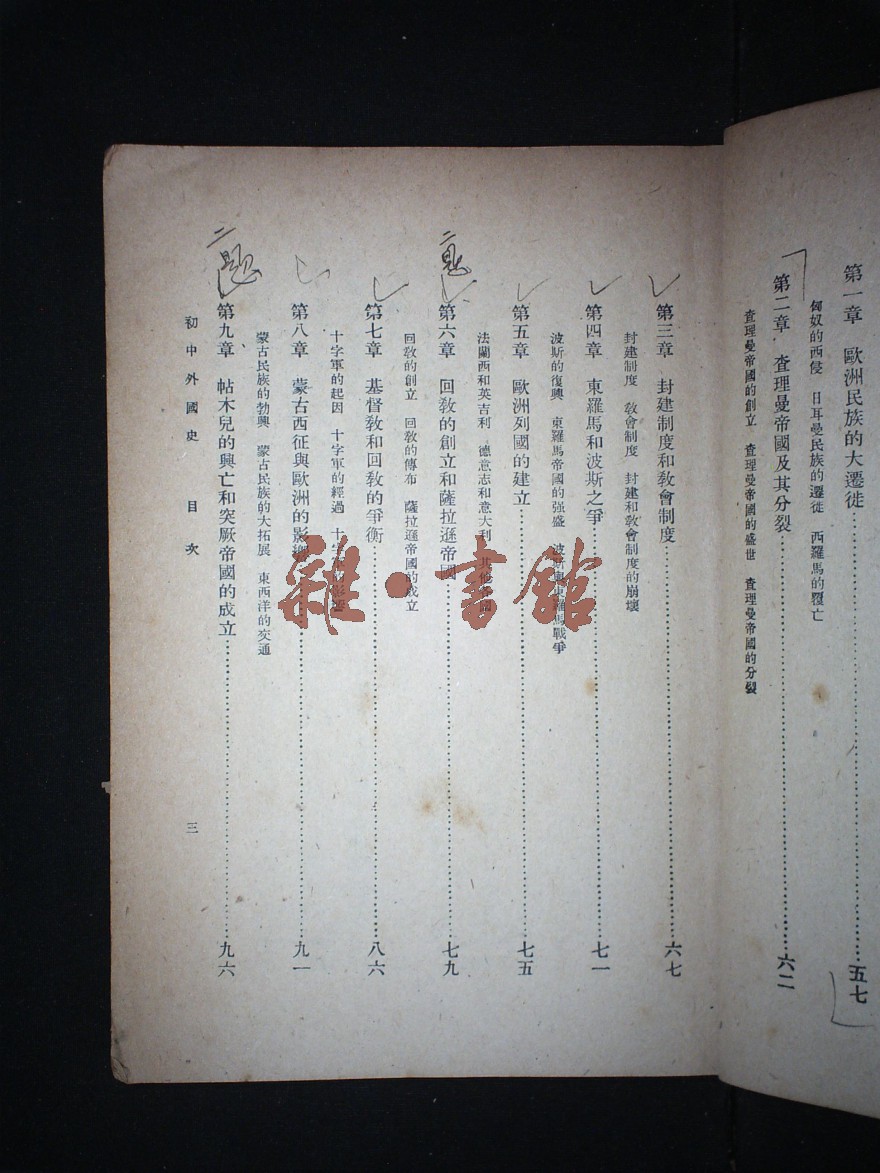 第一章　歐洲民族的大遷徙……五七
匈奴的西侵　日耳曼民族的遷徙　西羅馬的覆亡
第二章　查理曼帝國及其分裂……六二
查理曼帝國的創立　查理曼帝國的盛世　查理曼帝國的分裂
第三章　封建制度和敎會制度……六七
封建制度　敎會制度　封建和敎會制度的崩壞
第四章　東羅馬和波斯之爭……七一
波斯的復興　東羅馬帝國的強盛　波斯與東羅馬戰爭
第五章　歐洲列國的建立……七五
法蘭西和英吉利　德意志和意大利　其他各國
第六章　回敎的創立和薩拉遜帝國……七九
回敎的創立　回敎的傳布　薩拉遜帝國的成立
第七章　基督敎和回敎的爭衡……八六
十字軍的起因　十字軍的經過　十字軍的影響
第八章　蒙古西征與歐洲的影響……九一
蒙古民族的勃興　蒙古民族的大拓展　東西洋的交通
第九章　帖木兒的興亡和突厥帝國的成立……九六
初中外國史　目次　三
雜·書館